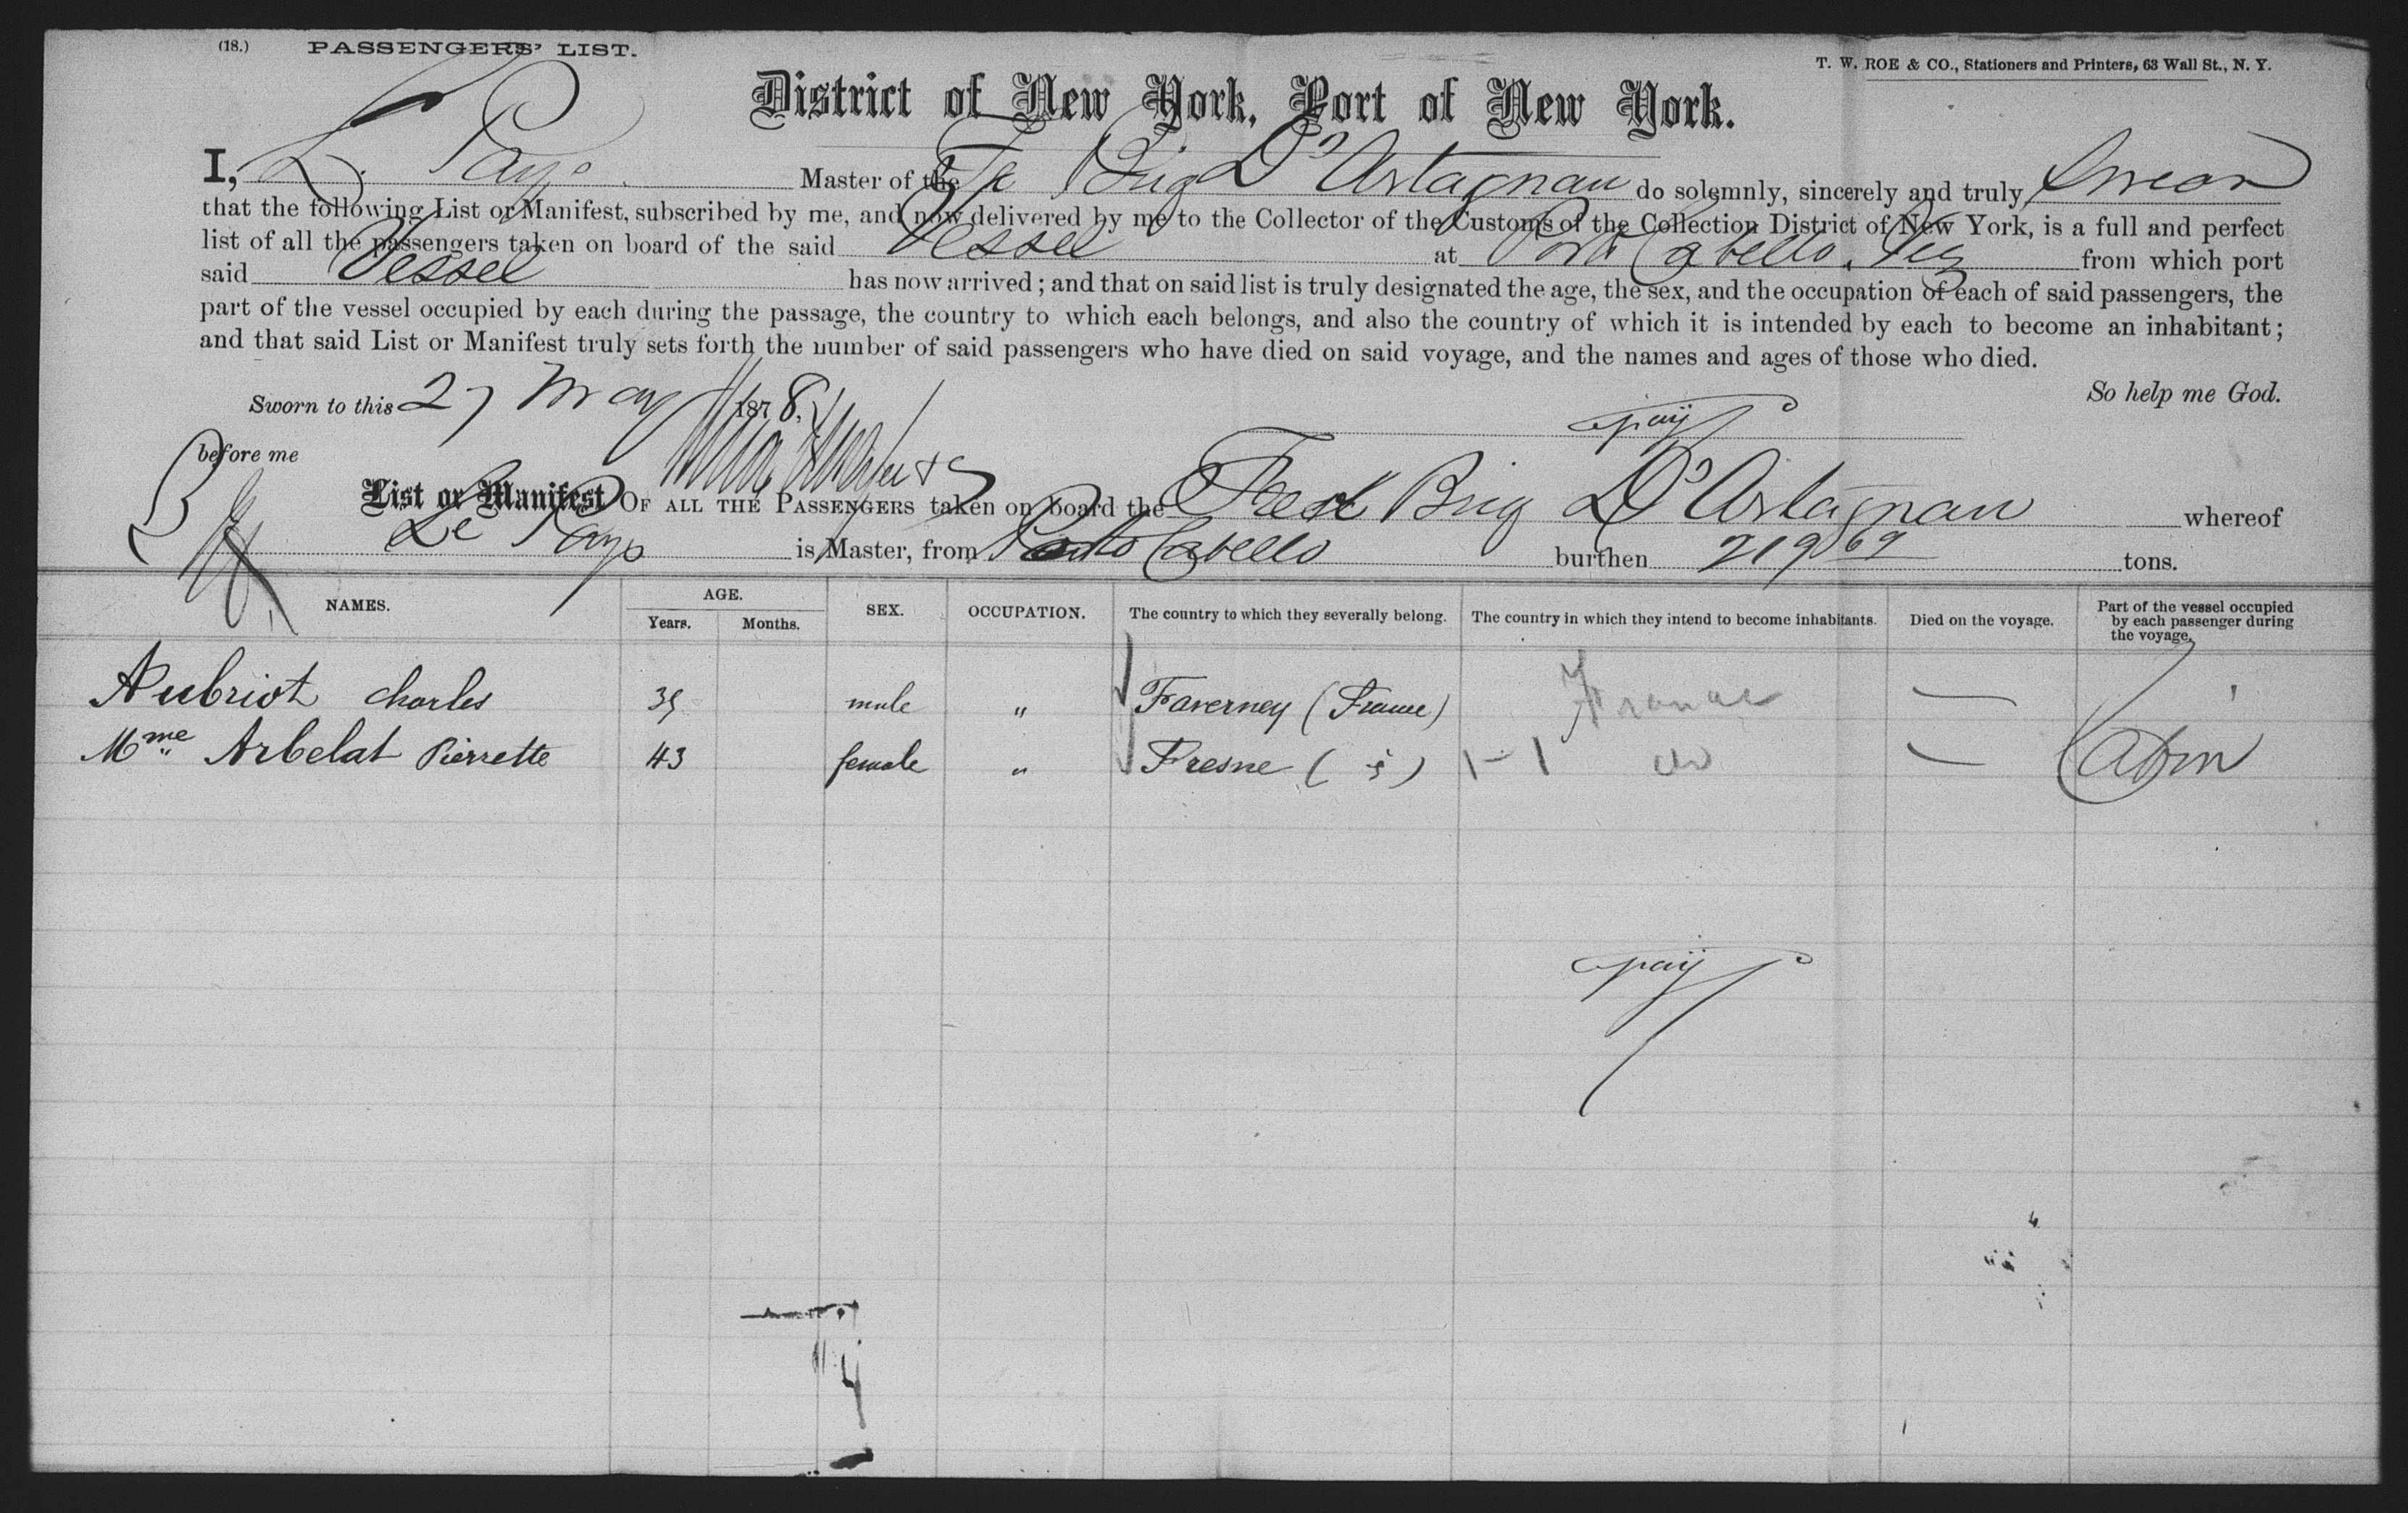 (18.) PASSENGERS' LIST.
T. W. ROE & CO., Stationers and Printers, 63 Wall St., N. Y.
District of New York, Port of New York.
I, L. Page Master of the Fr Brig D'Artagnan do solemnly, sincerely and truly swear
that the following List or Manifest, subscribed by me, and now delivered by me to the Collector of the Customs of the Collection District of New York, is a full and perfect
list of all the passengers taken on board of the said Vessel at Porto Cabello. from which port
said Vessel has now arrived; and that on said list is truly designated the age, the sex, and the occupation of each of said passengers, the
part of the vessel occupied by each during the passage, the country to which each belongs, and also the country of which it is intended by each to become an inhabitant;
and that said List or Manifest truly sets forth the number of said passengers who have died on said voyage, and the names and ages of those who died.
So help me God.
Sworn to this 27 May 1878.
before me
List or Manifest OF ALL THE PASSENGERS taken on board the Brig D'Artagnan whereof
Le Page is Master, from Porto Cabello burthen 219 69 tons.
NAMES. AGE. Years. Months. SEX. OCCUPATION. The country to which they severally belong. The country in which they intend to become inhabitants. Died on the voyage. Part of the vessel occupied by each passenger during the voyage.
Aubriot Charles male " Faverney (France) France —
Mme Arbelat Pierrette 43 female " Fresne ( ) 1-1 do — Cabin